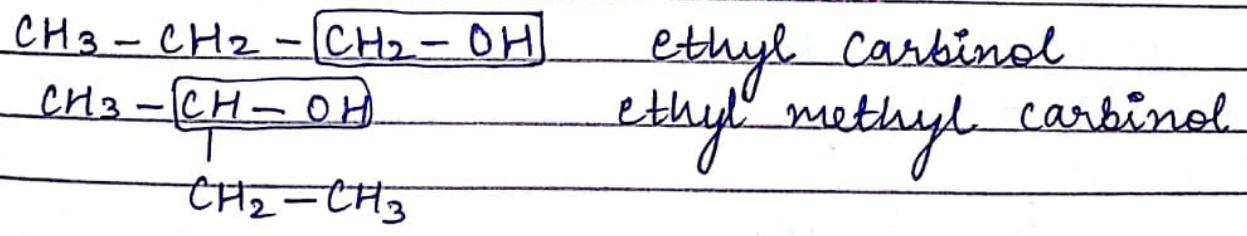 CH3 – CH2 – CH2 – OH ethyl carbinol
CH3 – CH – OH ethyl methyl carbinol
|
CH2 – CH3